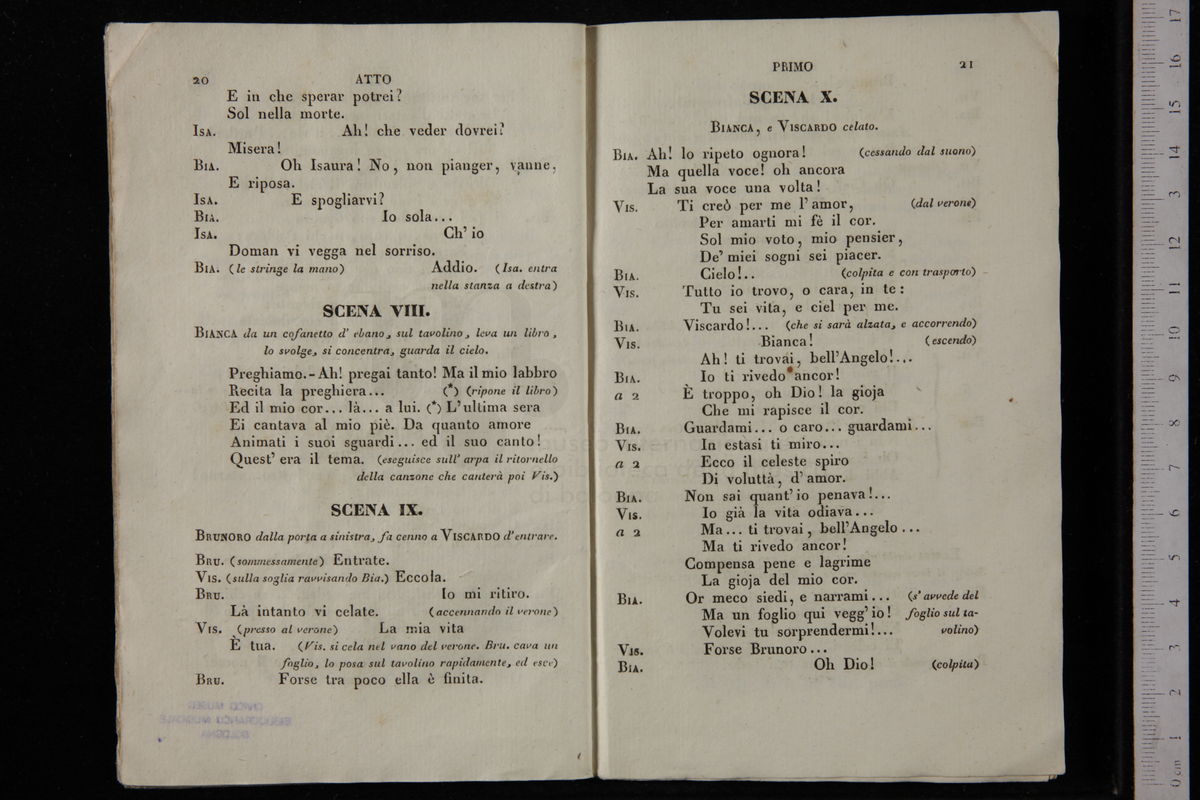 20 ATTO
E in che sperar potrei?
Sol nella morte.
ISA. Ah! che veder dovrei?
Misera!
BIA. Oh Isaura! No, non pianger, vanne,
E riposa.
ISA. E spogliarvi?
BIA. Io sola...
ISA. Ch' io
Doman vi vegga nel sorriso.
BIA. (le stringe la mano) Addio. (Isa. entra
nella stanza a destra)
SCENA VIII.
BIANCA da un cofanetto d' ebano, sul tavolino, leva un libro,
lo svolge, si concentra, guarda il cielo.
Preghiamo.-Ah! pregai tanto! Ma il mio labbro
Recita la preghiera... (*) (ripone il libro)
Ed il mio cor... là... a lui. (*) L'ultima sera
Ei cantava al mio piè. Da quanto amore
Animati i suoi sguardi... ed il suo canto!
Quest' era il tema. (eseguisce sull' arpa il ritornello
della canzone che canterà poi Vis.)
SCENA IX.
BRUNORO dalla porta a sinistra, fa cenno a VISCARDO d'entrare.
BRU. (sommessamente) Entrate.
VIS. (sulla soglia ravvisando Bia.) Eccola.
BRU. Io mi ritiro.
Là intanto vi celate. (accennando il verone)
VIS. (presso al verone) La mia vita
È tua. (Vis. si cela nel vano del verone. Bru. cava un
foglio, lo posa sul tavolino rapidamente, ed esce)
BRU. Forse tra poco ella è finita.
CIVICO MUSEO
BIBLIOGRAFICO MUSICALE
BOLOGNA
PRIMO 21
SCENA X.
BIANCA, e VISCARDO celato.
BIA. Ah! lo ripeto ognora! (cessando dal suono)
Ma quella voce! oh ancora
La sua voce una volta!
VIS. Ti creò per me l'amor, (dal verone)
Per amarti mi fè il cor.
Sol mio voto, mio pensier,
De' miei sogni sei piacer.
BIA. Cielo!.. (colpita e con trasporto)
VIS. Tutto io trovo, o cara, in te:
Tu sei vita, e ciel per me.
BIA. Viscardo!... (che si sarà alzata, e accorrendo)
VIS. Bianca! (escendo)
Ah! ti trovai, bell'Angelo!...
BIA. Io ti rivedo ancor!
a 2 È troppo, oh Dio! la gioja
Che mi rapisce il cor.
BIA. Guardami... o caro... guardami...
VIS. In estasi ti miro...
a 2 Ecco il celeste spiro
Di voluttà, d'amor.
BIA. Non sai quant'io penava!...
VIS. Io già la vita odiava...
a 2 Ma... ti trovai, bell'Angelo...
Ma ti rivedo ancor!
Compensa pene e lagrime
La gioja del mio cor.
BIA. Or meco siedi, e narrami... (s' avvede del
Ma un foglio qui vegg'io! foglio sul ta-
Volevi tu sorprendermi!... volino)
VIS. Forse Brunoro...
BIA. Oh Dio! (colpita)